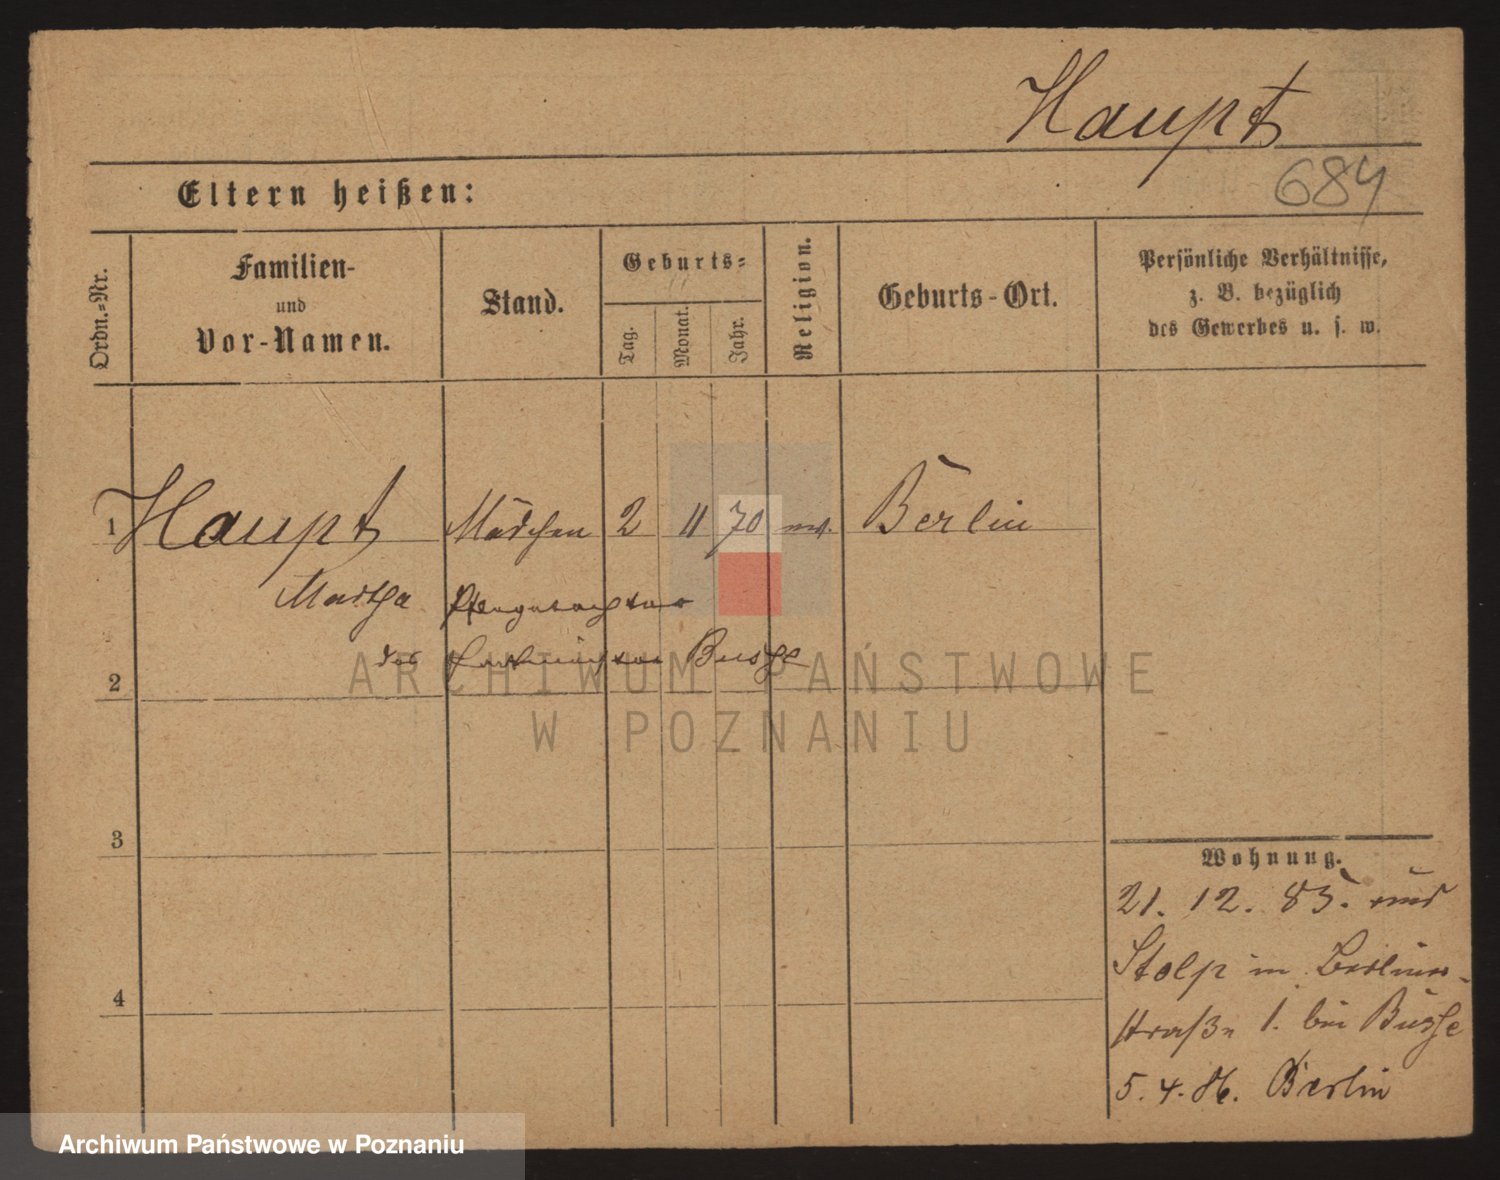 Haupt
684
Eltern heißen:
Ordn.-Nr.
Familien-
und
Vor-Namen.
Stand.
Geburts-
Tag.
Monat.
Jahr.
Religion.
Geburts-Ort.
Persönliche Verhältnisse,
z. B. bezüglich
des Gewerbes u. s. w.
1 Haupt Mädchen 2 11 70 ev. Berlin
Martha Pflegetochter
des Busse
2
3
4
Wohnung.
21. 12. 85. aus
Stolp in Berliner-
straße 1. bei Busse
5. 4. 86. Berlin
ARCHIWUM PAŃSTWOWE
W POZNANIU
Archiwum Państwowe w Poznaniu